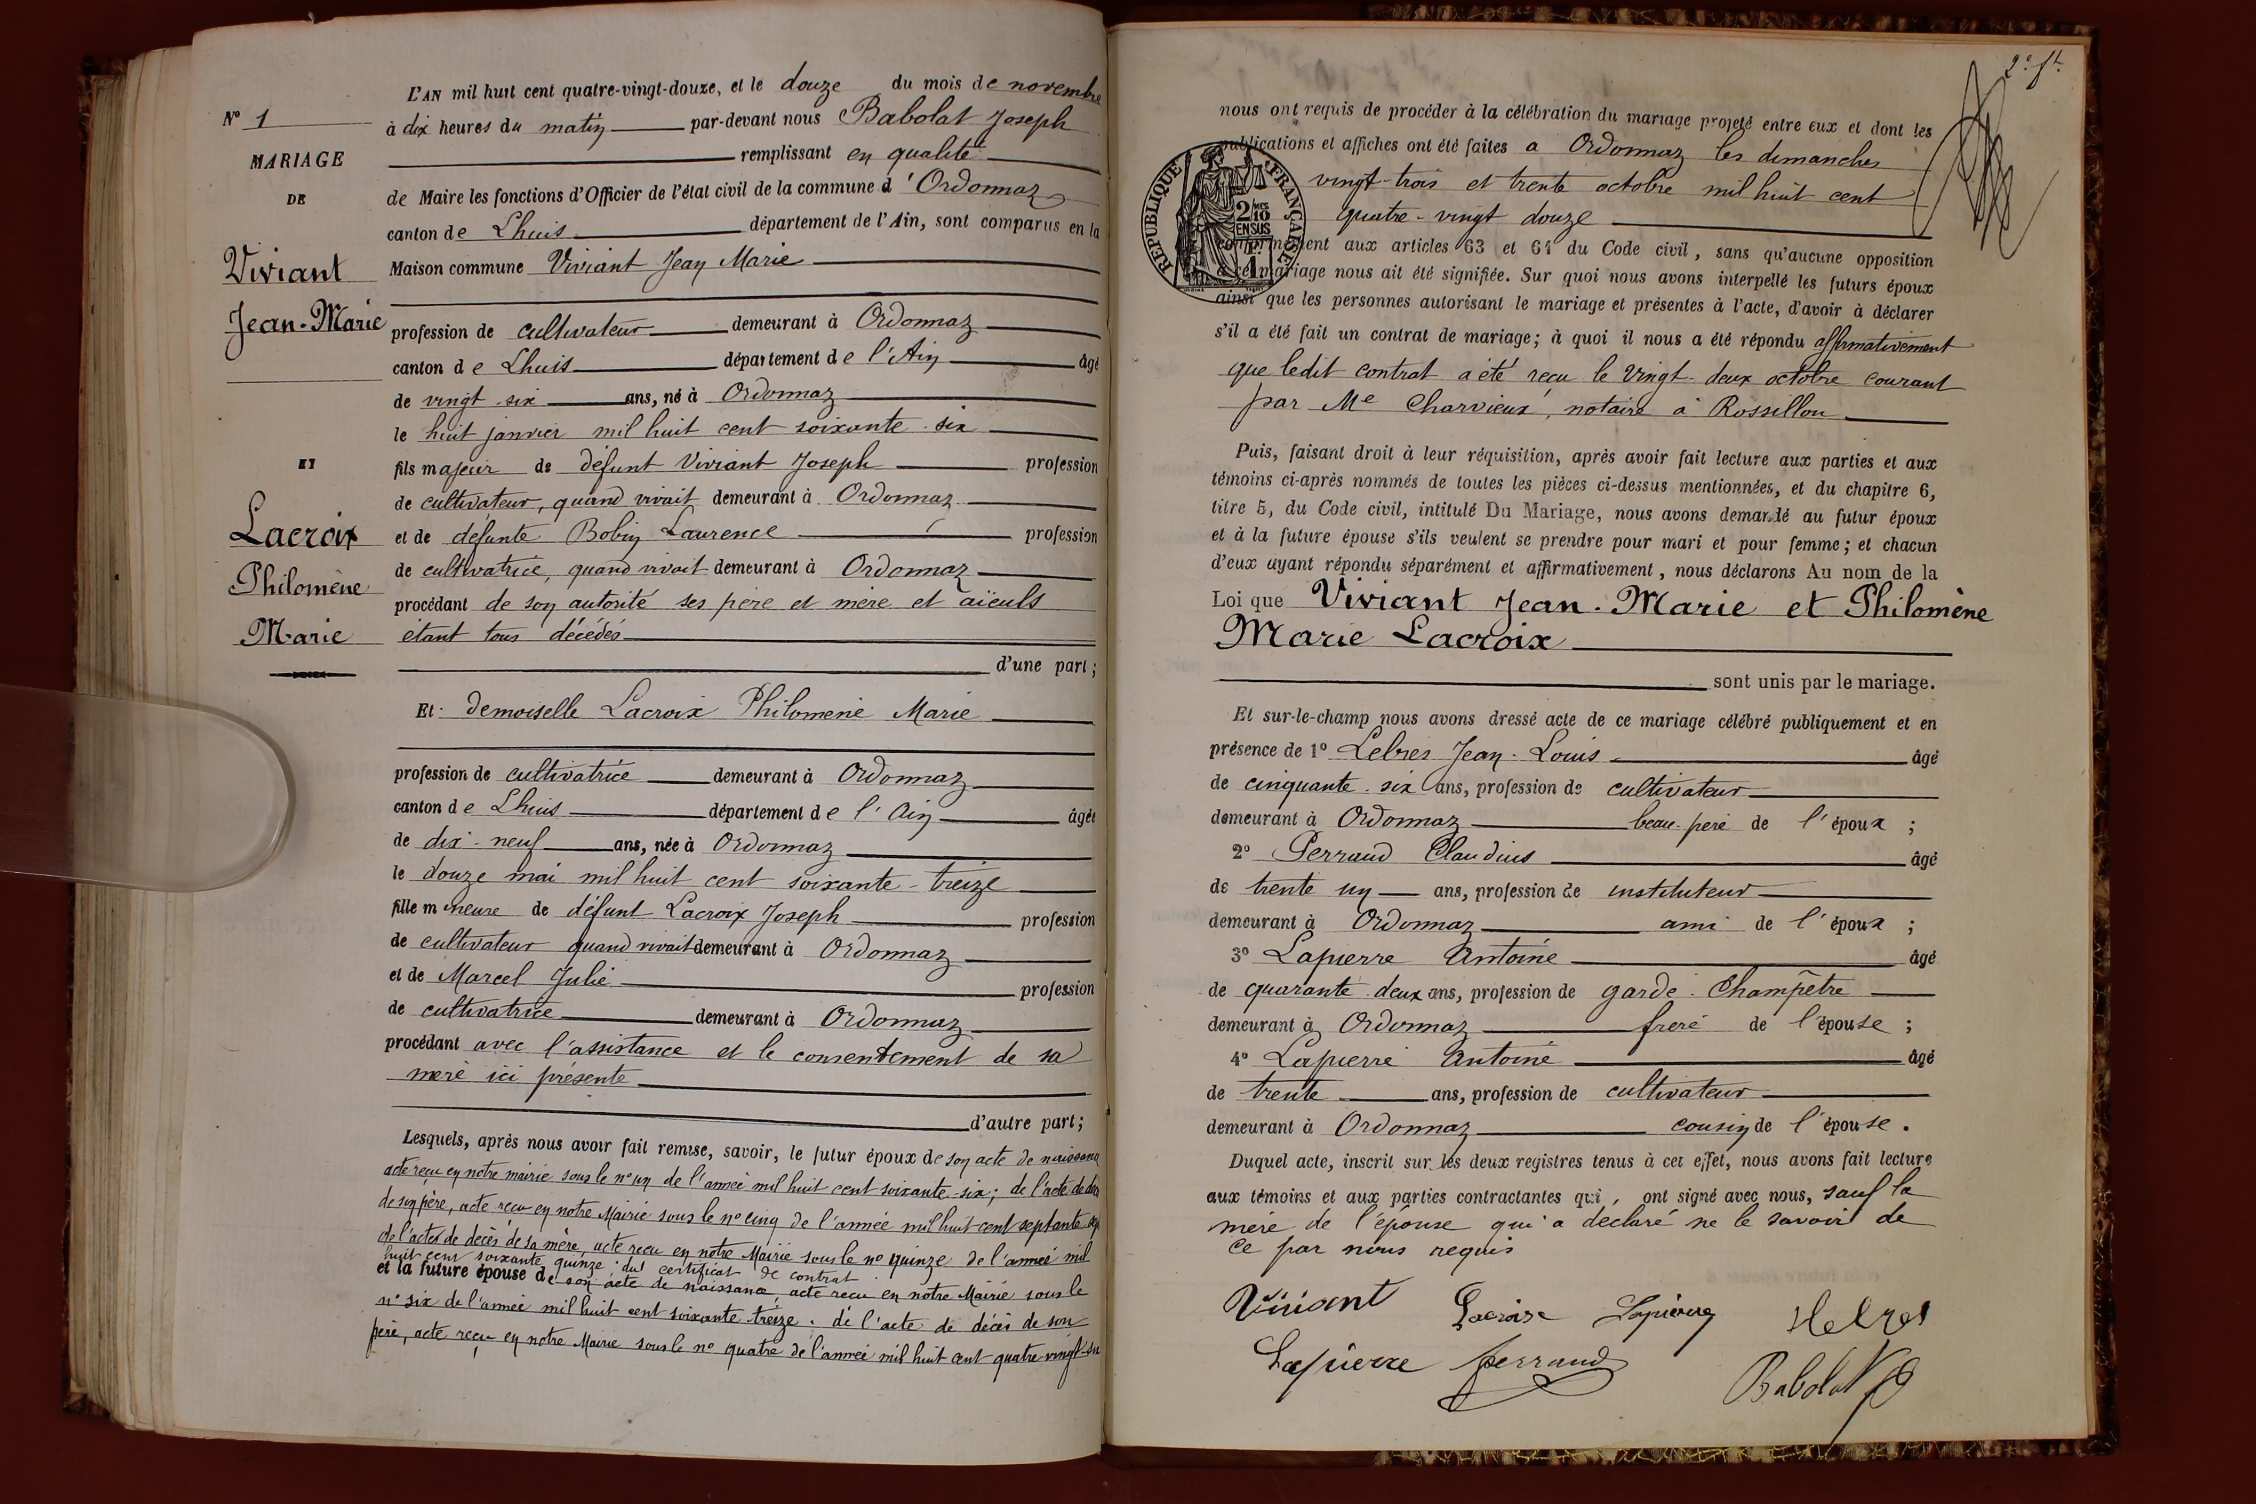 L'AN mil huit cent quatre-vingt-douze, et le douze du mois de novembre
N° 1
à dix heures du matin par-devant nous Babolat Joseph
MARIAGE
remplissant en qualité
DE
de Maire les fonctions d'Officier de l'état civil de la commune d'Ordonnaz
canton de Lhuis département de l'Ain, sont comparus en la
Viviant
Maison commune Viviant Jean Marie
Jean-Marie
profession de cultivateur demeurant à Ordonnaz
canton de Lhuis département de l'Ain âgé
de vingt-six ans, né à Ordonnaz
le huit janvier mil huit cent soixante-six
ET
fils majeur de défunt Viviant Joseph profession
de cultivateur, quand vivait demeurant à Ordonnaz
Lacroix
et de défunte Bobin Laurence profession
de cultivatrice, quand vivait demeurant à Ordonnaz
Philomène
procédant de son autorité ses père et mère et aïeuls
Marie
étant tous décédés
d'une part ;
Et demoiselle Lacroix Philomène Marie
profession de cultivatrice demeurant à Ordonnaz
canton de Lhuis département de l'Ain âgée
de dix-neuf ans, née à Ordonnaz
le douze mai mil huit cent soixante-treize
fille mineure de défunt Lacroix Joseph profession
de cultivateur quand vivait demeurant à Ordonnaz
et de Marcel Julie profession
de cultivatrice demeurant à Ordonnaz
procédant avec l'assistance et le consentement de sa
mère ici présente
d'autre part ;
Lesquels, après nous avoir fait remise, savoir, le futur époux de son acte de naissance
acte reçu en notre mairie sous le n° un de l'année mil huit cent soixante-six ; de l'acte de décès
de son père, acte reçu en notre Mairie sous le n° cinq de l'année mil huit cent septante
de l'acte de décès de sa mère, acte reçu en notre Mairie sous le n° quinze de l'année mil
huit cent soixante quinze ; du certificat de contrat
et la future épouse de son acte de naissance, acte reçu en notre Mairie sous le
n° six de l'année mil huit cent soixante treize ; de l'acte de décès de son
père, acte reçu en notre Mairie sous le n° quatre de l'année mil huit cent quatre-vingt-six
2e ft.
nous ont requis de procéder à la célébration du mariage projeté entre eux et dont les
publications et affiches ont été faites a Ordonnaz les dimanches
vingt-trois et trente octobre mil huit cent
quatre-vingt douze
RÉPUBLIQUE FRANÇAISE
2/10 EN SUS
conformément aux articles 63 et 64 du Code civil, sans qu'aucune opposition
à ce mariage nous ait été signifiée. Sur quoi nous avons interpellé les futurs époux
ainsi que les personnes autorisant le mariage et présentes à l'acte, d'avoir à déclarer
s'il a été fait un contrat de mariage ; à quoi il nous a été répondu affirmativement
que ledit contrat a été reçu le vingt-deux octobre courant
par Me Charvieux, notaire à Rossillon
Puis, faisant droit à leur réquisition, après avoir fait lecture aux parties et aux
témoins ci-après nommés de toutes les pièces ci-dessus mentionnées, et du chapitre 6,
titre 5, du Code civil, intitulé Du Mariage, nous avons demandé au futur époux
et à la future épouse s'ils veulent se prendre pour mari et pour femme ; et chacun
d'eux ayant répondu séparément et affirmativement, nous déclarons Au nom de la
Loi que Viviant Jean-Marie et Philomène
Marie Lacroix
sont unis par le mariage.
Et sur-le-champ nous avons dressé acte de ce mariage célébré publiquement et en
présence de 1° Lebres Jean-Louis âgé
de cinquante-six ans, profession de cultivateur
demeurant à Ordonnaz beau-père de l'époux ;
2° Perraud Claudius âgé
de trente un ans, profession de instituteur
demeurant à Ordonnaz ami de l'époux ;
3° Lapierre Antoine âgé
de quarante-deux ans, profession de garde-Champêtre
demeurant à Ordonnaz frère de l'épouse ;
4° Lapierre Antoine âgé
de trente ans, profession de cultivateur
demeurant à Ordonnaz cousin de l'épouse.
Duquel acte, inscrit sur les deux registres tenus à cet effet, nous avons fait lecture
aux témoins et aux parties contractantes qui, ont signé avec nous, sauf la
mère de l'épouse qui a déclaré ne le savoir de
ce par nous requis
Viviant Lacroix Lapierre
Lapierre Perraud Babolat